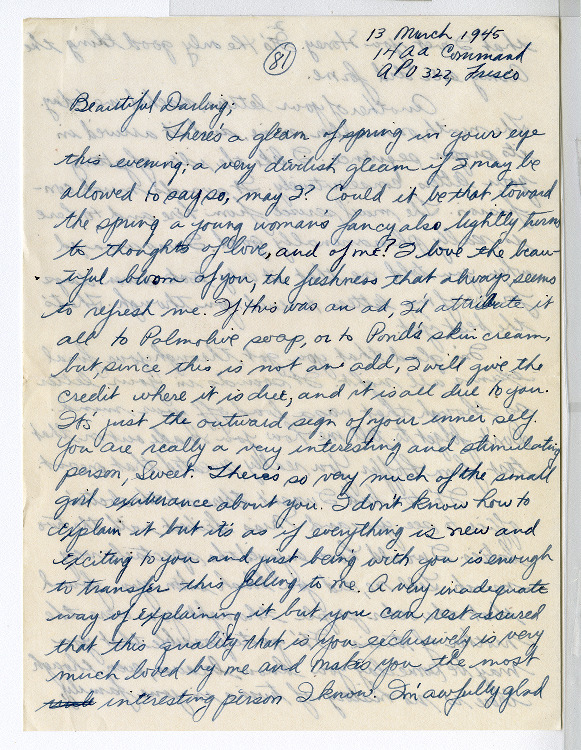 13 March 1945
(81)
14 AA Command
APO 322, Frisco
Beautiful Darling;
There's a gleam of spring in your eye
this evening; a very divilish gleam if I may be
allowed to say so, may I? Could it be that toward
the spring a young woman's fancy also lightly turns
to thoughts of love, and of me? I love the beau-
tiful bloom of you, the freshness that always seems
to refresh me. If this was an ad, I'd attribute it
all to Palmolive soap, or to Pond's skin cream,
but, since this is not an add, I will give the
credit where it is due, and it is all due to you.
It's just the outward sign of your inner self.
You are really a very interesting and stimulating
person, Sweet. There's so very much of the small
girl exuberance about you. I don't know how to
explain it but it's as if everything is new and
exciting to you and just being with you is enough
to transfer this feeling to me. A very inadequate
way of explaining it but you can rest assured
that this quality that is you exclusively is very
much loved by me and makes you the most
interesting person I know. I'm awfully glad